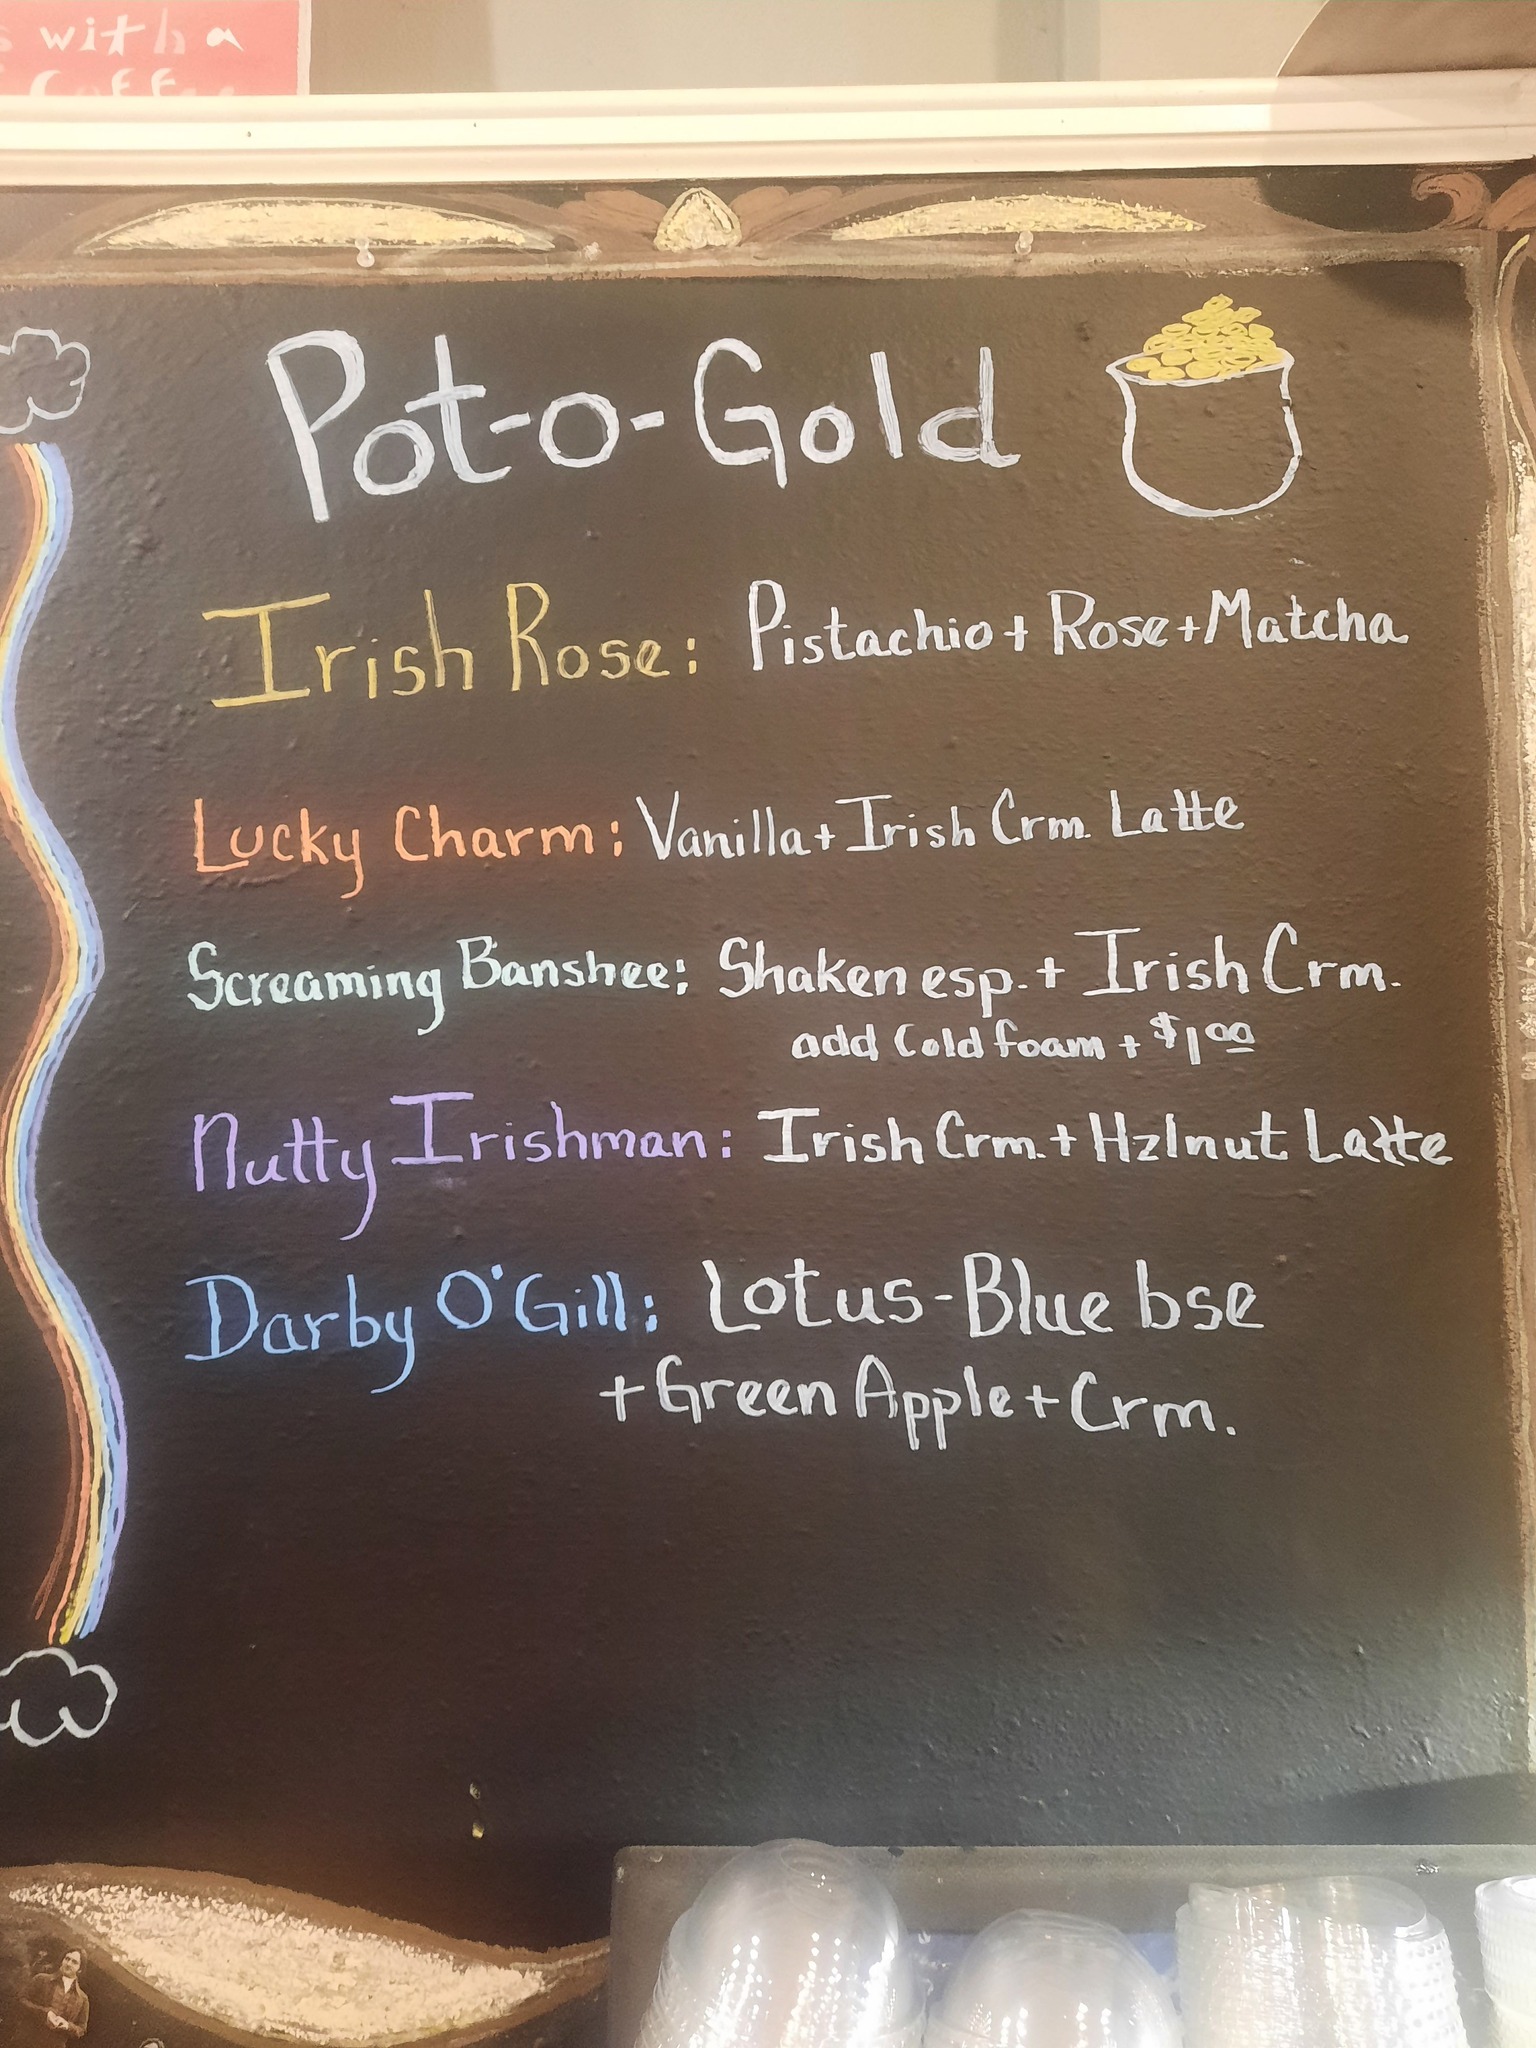 with a
Pot-o-Gold
Irish Rose: Pistachio + Rose + Matcha
Lucky Charm: Vanilla + Irish Crm. Latte
Screaming Banshee: Shaken esp. + Irish Crm.
add Cold foam + $1.00
Nutty Irishman: Irish Crm. + Hzlnut Latte
Darby O'Gill: Lotus-Blue bse
+ Green Apple + Crm.